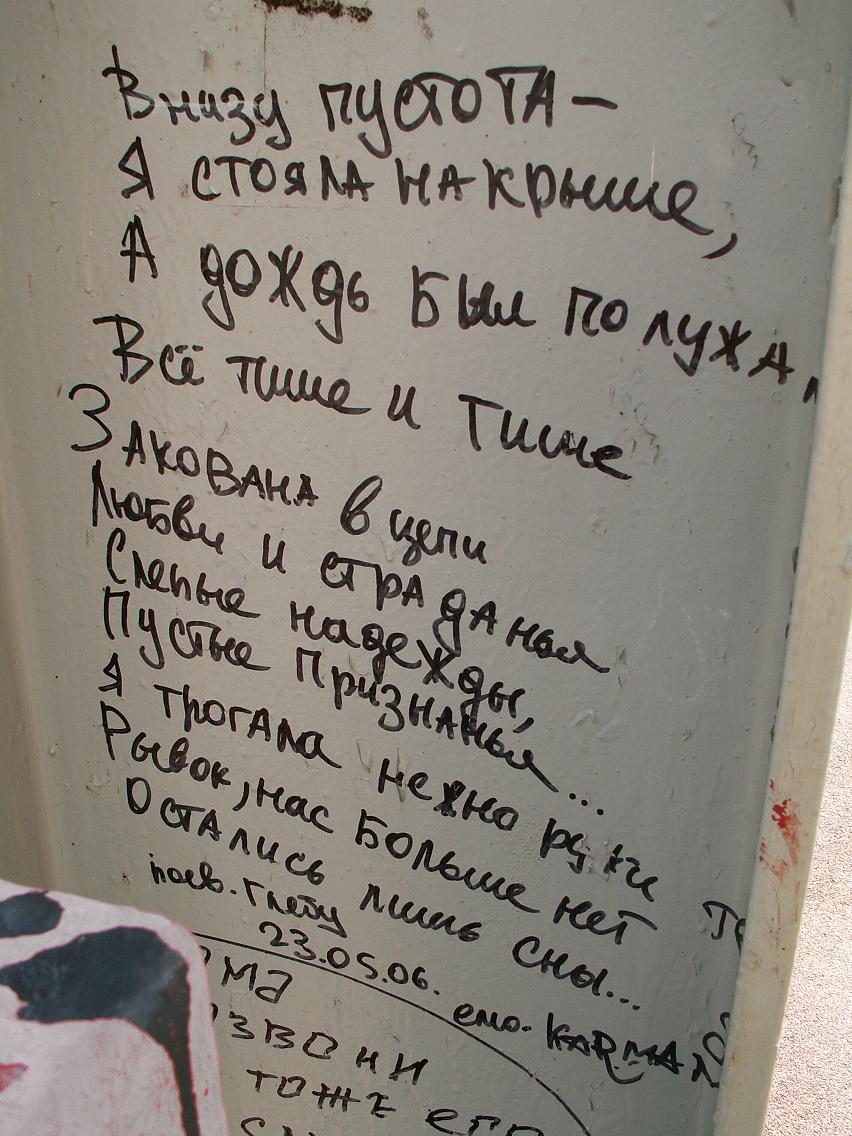 Внизу пустота —
Я стояла на крыше,
А дождь был по лужа
Всё тише и тише
Закована в цепи
Любви и страданья
Слепые надежды,
Пустые признанья...
Я трогала нежно руки
Рывок, нас больше нет
Остались лишь сны...
посв. Глебу
23.05.06.
емо. KARMA
звони
тоже его